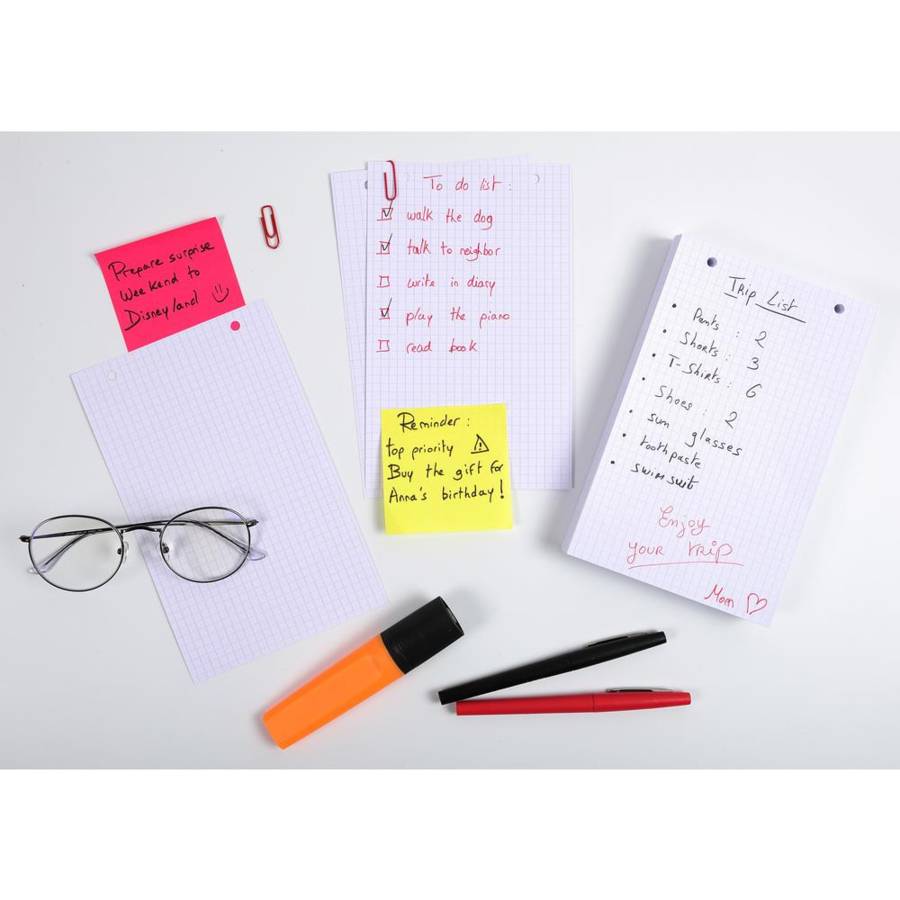 Prepare surprise
Weekend to
Disneyland
To do list :
walk the dog
talk to neighbor
write in diary
play the piano
read book
Reminder :
top priority
Buy the gift for
Anna's birthday!
Trip List
Pants : 2
Shorts : 3
T-Shirts : 6
Shoes : 2
sun glasses
toothpaste
swimsuit
Enjoy
your trip
Mom